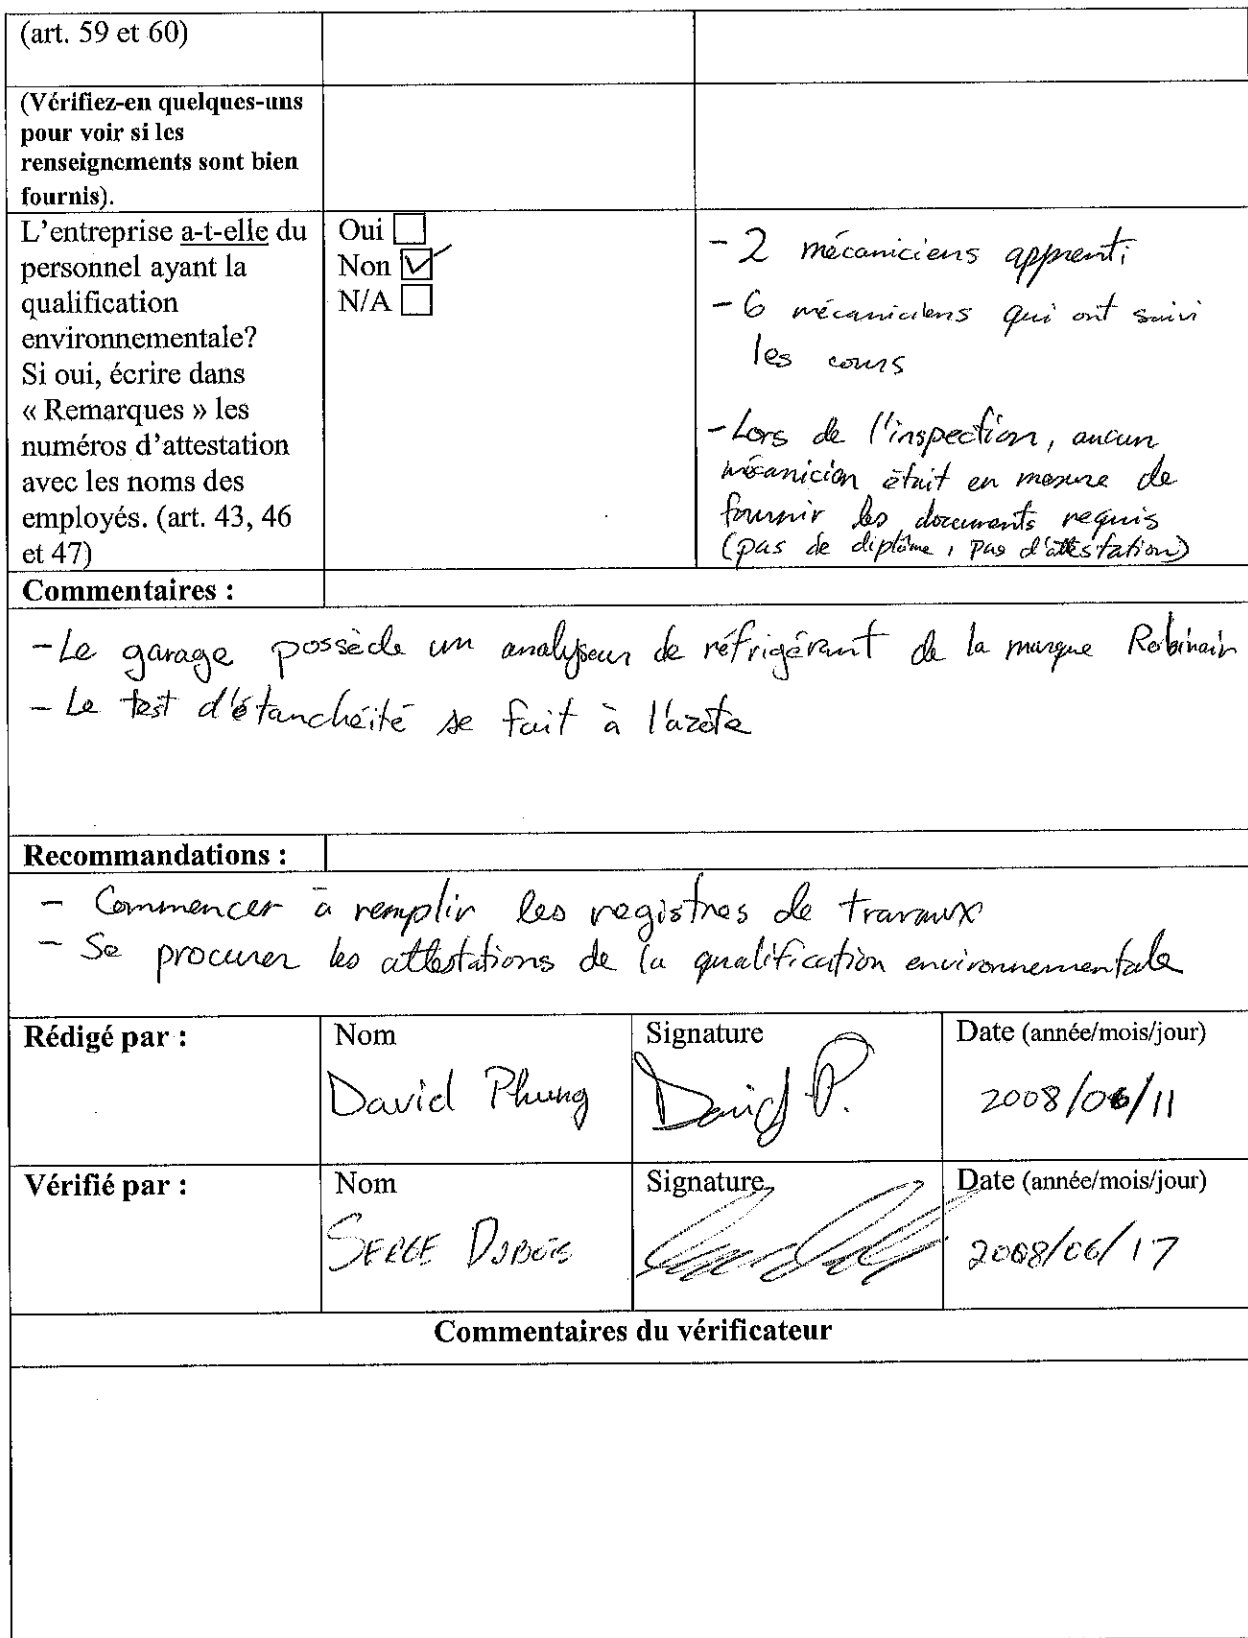 (art. 59 et 60)
(Vérifiez-en quelques-uns
pour voir si les
renseignements sont bien
fournis).
L'entreprise a-t-elle du
personnel ayant la
qualification
environnementale?
Si oui, écrire dans
« Remarques » les
numéros d'attestation
avec les noms des
employés. (art. 43, 46
et 47)
Oui
Non
N/A
- 2 mécaniciens apprenti
- 6 mécaniciens qui ont suivi
les cours
- Lors de l'inspection, aucun
mécanicien était en mesure de
fournir les documents requis
(pas de diplôme, pas d'attestation)
Commentaires :
- Le garage possède un analyseur de réfrigérant de la marque Robinair
- Le test d'étanchéité se fait à l'azote
Recommandations :
- Commencer à remplir les registres de travaux
- Se procurer les attestations de la qualification environnementale
Rédigé par :
Nom
David Phung
Signature
David P.
Date (année/mois/jour)
2008/06/11
Vérifié par :
Nom
SERGE DUBOIS
Signature
Date (année/mois/jour)
2008/06/17
Commentaires du vérificateur